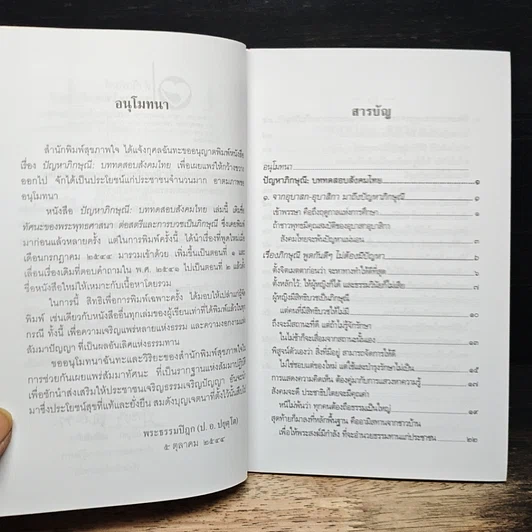 อนุโมทนา
สำนักพิมพ์สุขภาพใจ ได้แจ้งกุศลฉันทะขออนุญาตพิมพ์หนังสือ
เรื่อง ปัญหาภิกษุณี: บททดสอบสังคมไทย เพื่อเผยแพร่ให้กว้างขวาง
ออกไป จักได้เป็นประโยชน์แก่ประชาชนจำนวนมาก อาตมภาพขอ
อนุโมทนา
หนังสือ ปัญหาภิกษุณี: บททดสอบสังคมไทย เล่มนี้ เดิมชื่อ
ทัศนะของพระพุทธศาสนา ต่อสตรีและการบวชเป็นภิกษุณี ซึ่งได้พิมพ์
มาก่อนแล้วหลายครั้ง แต่ในการพิมพ์ครั้งนี้ ได้นำเรื่องที่พูดใหม่ใน
เดือนกรกฎาคม ๒๕๔๔ มารวมเข้าด้วย เพิ่มขึ้นเป็นตอนที่ ๑ และ
เลื่อนเรื่องเดิมที่ตอบคำถามใน พ.ศ. ๒๕๔๑ ไปเป็นตอนที่ ๒ แล้วตั้ง
ชื่อหนังสือใหม่ให้เหมาะกับเนื้อหาโดยรวม
ในการนี้ สิทธิเพื่อการพิมพ์เฉพาะครั้ง ได้มอบให้เปล่าแก่ผู้จัด
พิมพ์ เช่นเดียวกับหนังสืออื่นทุกเล่มของผู้เขียนเท่าที่ได้พิมพ์แล้วในทุก
กรณี ทั้งนี้ เพื่อความเจริญแพร่หลายแห่งธรรม และความงอกงามแห่ง
สัมมาปัญญา ที่เป็นผลอันเลิศแห่งธรรมทาน
ขออนุโมทนาฉันทะและวิริยะของสำนักพิมพ์สุขภาพใจ ใน
การช่วยกันเผยแพร่สัมมาทัศนะ ที่เป็นรากฐานแห่งสัมมาปฏิบัติ
เพื่อชักนำส่งเสริมให้ประชาชนเจริญธรรมเจริญปัญญา อันจะนำ
มาซึ่งประโยชน์สุขที่แท้และยั่งยืน สมดังบุญเจตนาที่ตั้งไว้นั้นสืบไป
พระธรรมปิฎก (ป. อ. ปยุตฺโต)
๕ ตุลาคม ๒๕๔๔
สารบัญ
อนุโมทนา
ปัญหาภิกษุณี: บททดสอบสังคมไทย ๑
๑. จากอุบาสก-อุบาสิกา มาถึงปัญหาภิกษุณี ๑
เข้าพรรษา คือถึงฤดูกาลแห่งการศึกษา ๑
ถ้าชาวพุทธมีคุณสมบัติของอุบาสกอุบาสิกา
สังคมไทยจะพ้นปัญหาแน่นอน ๓
เรื่องภิกษุณี พูดกันดีๆ ไม่ต้องมีปัญหา ๖
ตั้งจิตเมตตาก่อนว่า จะหาทางทำให้ดีที่สุด ๖
ตั้งหลักไว้: ให้ผู้หญิงก็ได้ และธรรมวินัยก็ไม่เสีย
ผู้หญิงมีสิทธิบวชเป็นภิกษุณี
แต่คนที่มีสิทธิบวชให้ไม่มี
ถึงจะมีสถานะที่ดี แต่ถ้าไม่รู้จักรักษา ๑๐
ในไม่ช้าก็จะเสื่อมจากสถานะนั้นเอง ๑๓
พิสูจน์ตัวเองว่า สิ่งที่มีอยู่ สามารถจัดการให้ดี
ไม่ใช่ชอบแต่ของใหม่ แต่ใช้และบำรุงรักษาไม่เป็น
การแสดงความคิดเห็น ต้องคู่มากับการแสวงหาความรู้
สังคมจะดี ประชาธิปไตยจะมีคุณค่า
หนีไม่พ้นว่า ทุกคนต้องถือธรรมเป็นใหญ่ ๑๙
สุดท้ายก็มาลงที่หลักพื้นฐาน คืออามิสทานจากชาวบ้าน
เพื่อให้พระสงฆ์มีกำลัง ที่จะอำนวยธรรมทานแก่ประชาชน ๒๒